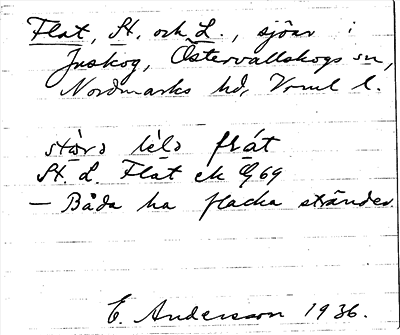 Flat, St. och L., sjöar i
Juskog, Östervallskogs sn,
Nordmarks hd, Vrml l.
störə lèlə flát
St. L. Flat ek G 69
– Båda ha flacka stränder.
E. Andersson 1936.